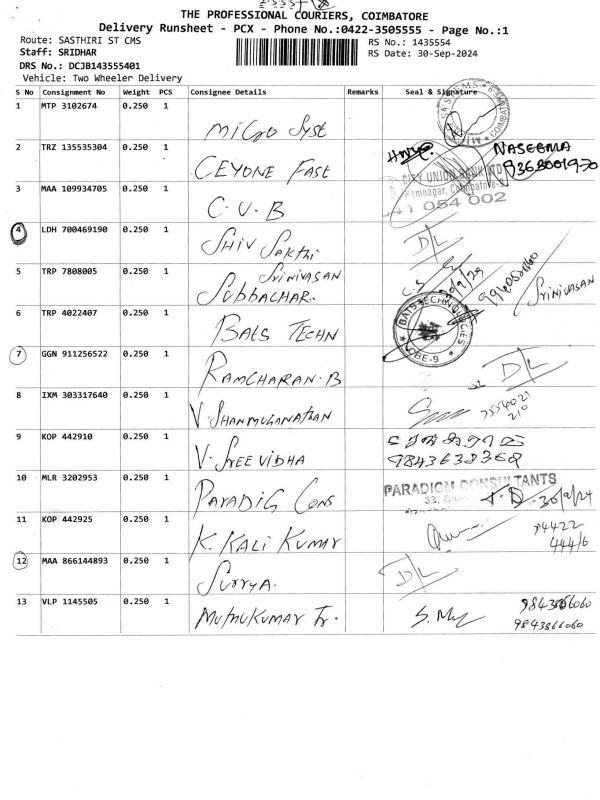 THE PROFESSIONAL COURIERS, COIMBATORE
Delivery Runsheet - PCX - Phone No.:0422-3505555 - Page No.:1
Route: SASTHIRI ST CMS
RS No.: 1435554
Staff: SRIDHAR
RS Date: 30-Sep-2024
DRS No.: DCJB143555401
Vehicle: Two Wheeler Delivery
S No Consignment No Weight PCS Consignee Details Remarks Seal & Signature
1 MTP 3102674 0.250 1 Micro Syst
2 TRZ 135535304 0.250 1 CEYONE FAST NASEEMA
9363001970
CITY UNION BANK LTD
Ramnagar, Coimbatore-9
054 002
3 MAA 109934705 0.250 1 C.U.B
4 LDH 700469190 0.250 1 SHIV Sakthi D/L
5 TRP 7808005 0.250 1 SRINIVASAN
SUBBACHAR. SRINIVASAN
6 TRP 4022407 0.250 1 BATS TECHN BATS TECHNOLOGIES CBE-9
7 GGN 911256522 0.250 1 RAMCHARAN.B D/L
8 IXM 303317640 0.250 1 V.SHANMUGANATHAN
9 KOP 442910 0.250 1 V.SREEVIDHA
9843638368
10 MLR 3202953 0.250 1 PARADIG CONS PARADIGM CONSULTANTS
30/9/24
11 KOP 442925 0.250 1 K.KALI KUMAR 94422
444/6
12 MAA 866144893 0.250 1 SURRYA. D/L
13 VLP 1145505 0.250 1 MUTHUKUMAR Tr. S. 9843866060
9843866060